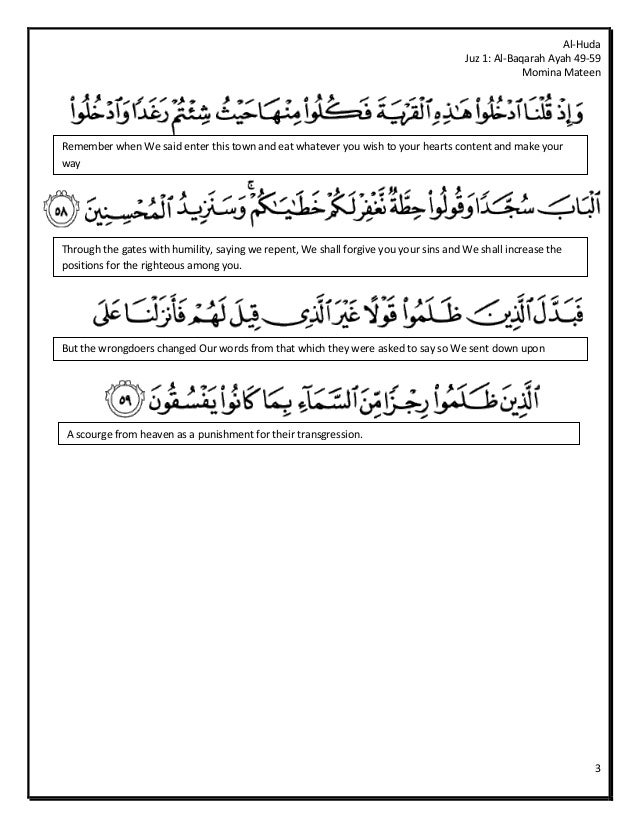 Al-Huda
Juz 1: Al-Baqarah Ayah 49-59
Momina Mateen
وَإِذْ قُلْنَا ٱدْخُلُوا۟ هَـٰذِهِ ٱلْقَرْيَةَ فَكُلُوا۟ مِنْهَا حَيْثُ شِئْتُمْ رَغَدًا وَٱدْخُلُوا۟
Remember when We said enter this town and eat whatever you wish to your hearts content and make your
way
ٱلْبَابَ سُجَّدًا وَقُولُوا۟ حِطَّةٌ نَّغْفِرْ لَكُمْ خَطَـٰيَـٰكُمْ ۚ وَسَنَزِيدُ ٱلْمُحْسِنِينَ ٥٨
Through the gates with humility, saying we repent, We shall forgive you your sins and We shall increase the
positions for the righteous among you.
فَبَدَّلَ ٱلَّذِينَ ظَلَمُوا۟ قَوْلًا غَيْرَ ٱلَّذِى قِيلَ لَهُمْ فَأَنزَلْنَا عَلَى
But the wrongdoers changed Our words from that which they were asked to say so We sent down upon
ٱلَّذِينَ ظَلَمُوا۟ رِجْزًا مِّنَ ٱلسَّمَآءِ بِمَا كَانُوا۟ يَفْسُقُونَ ٥٩
A scourge from heaven as a punishment for their transgression.
3